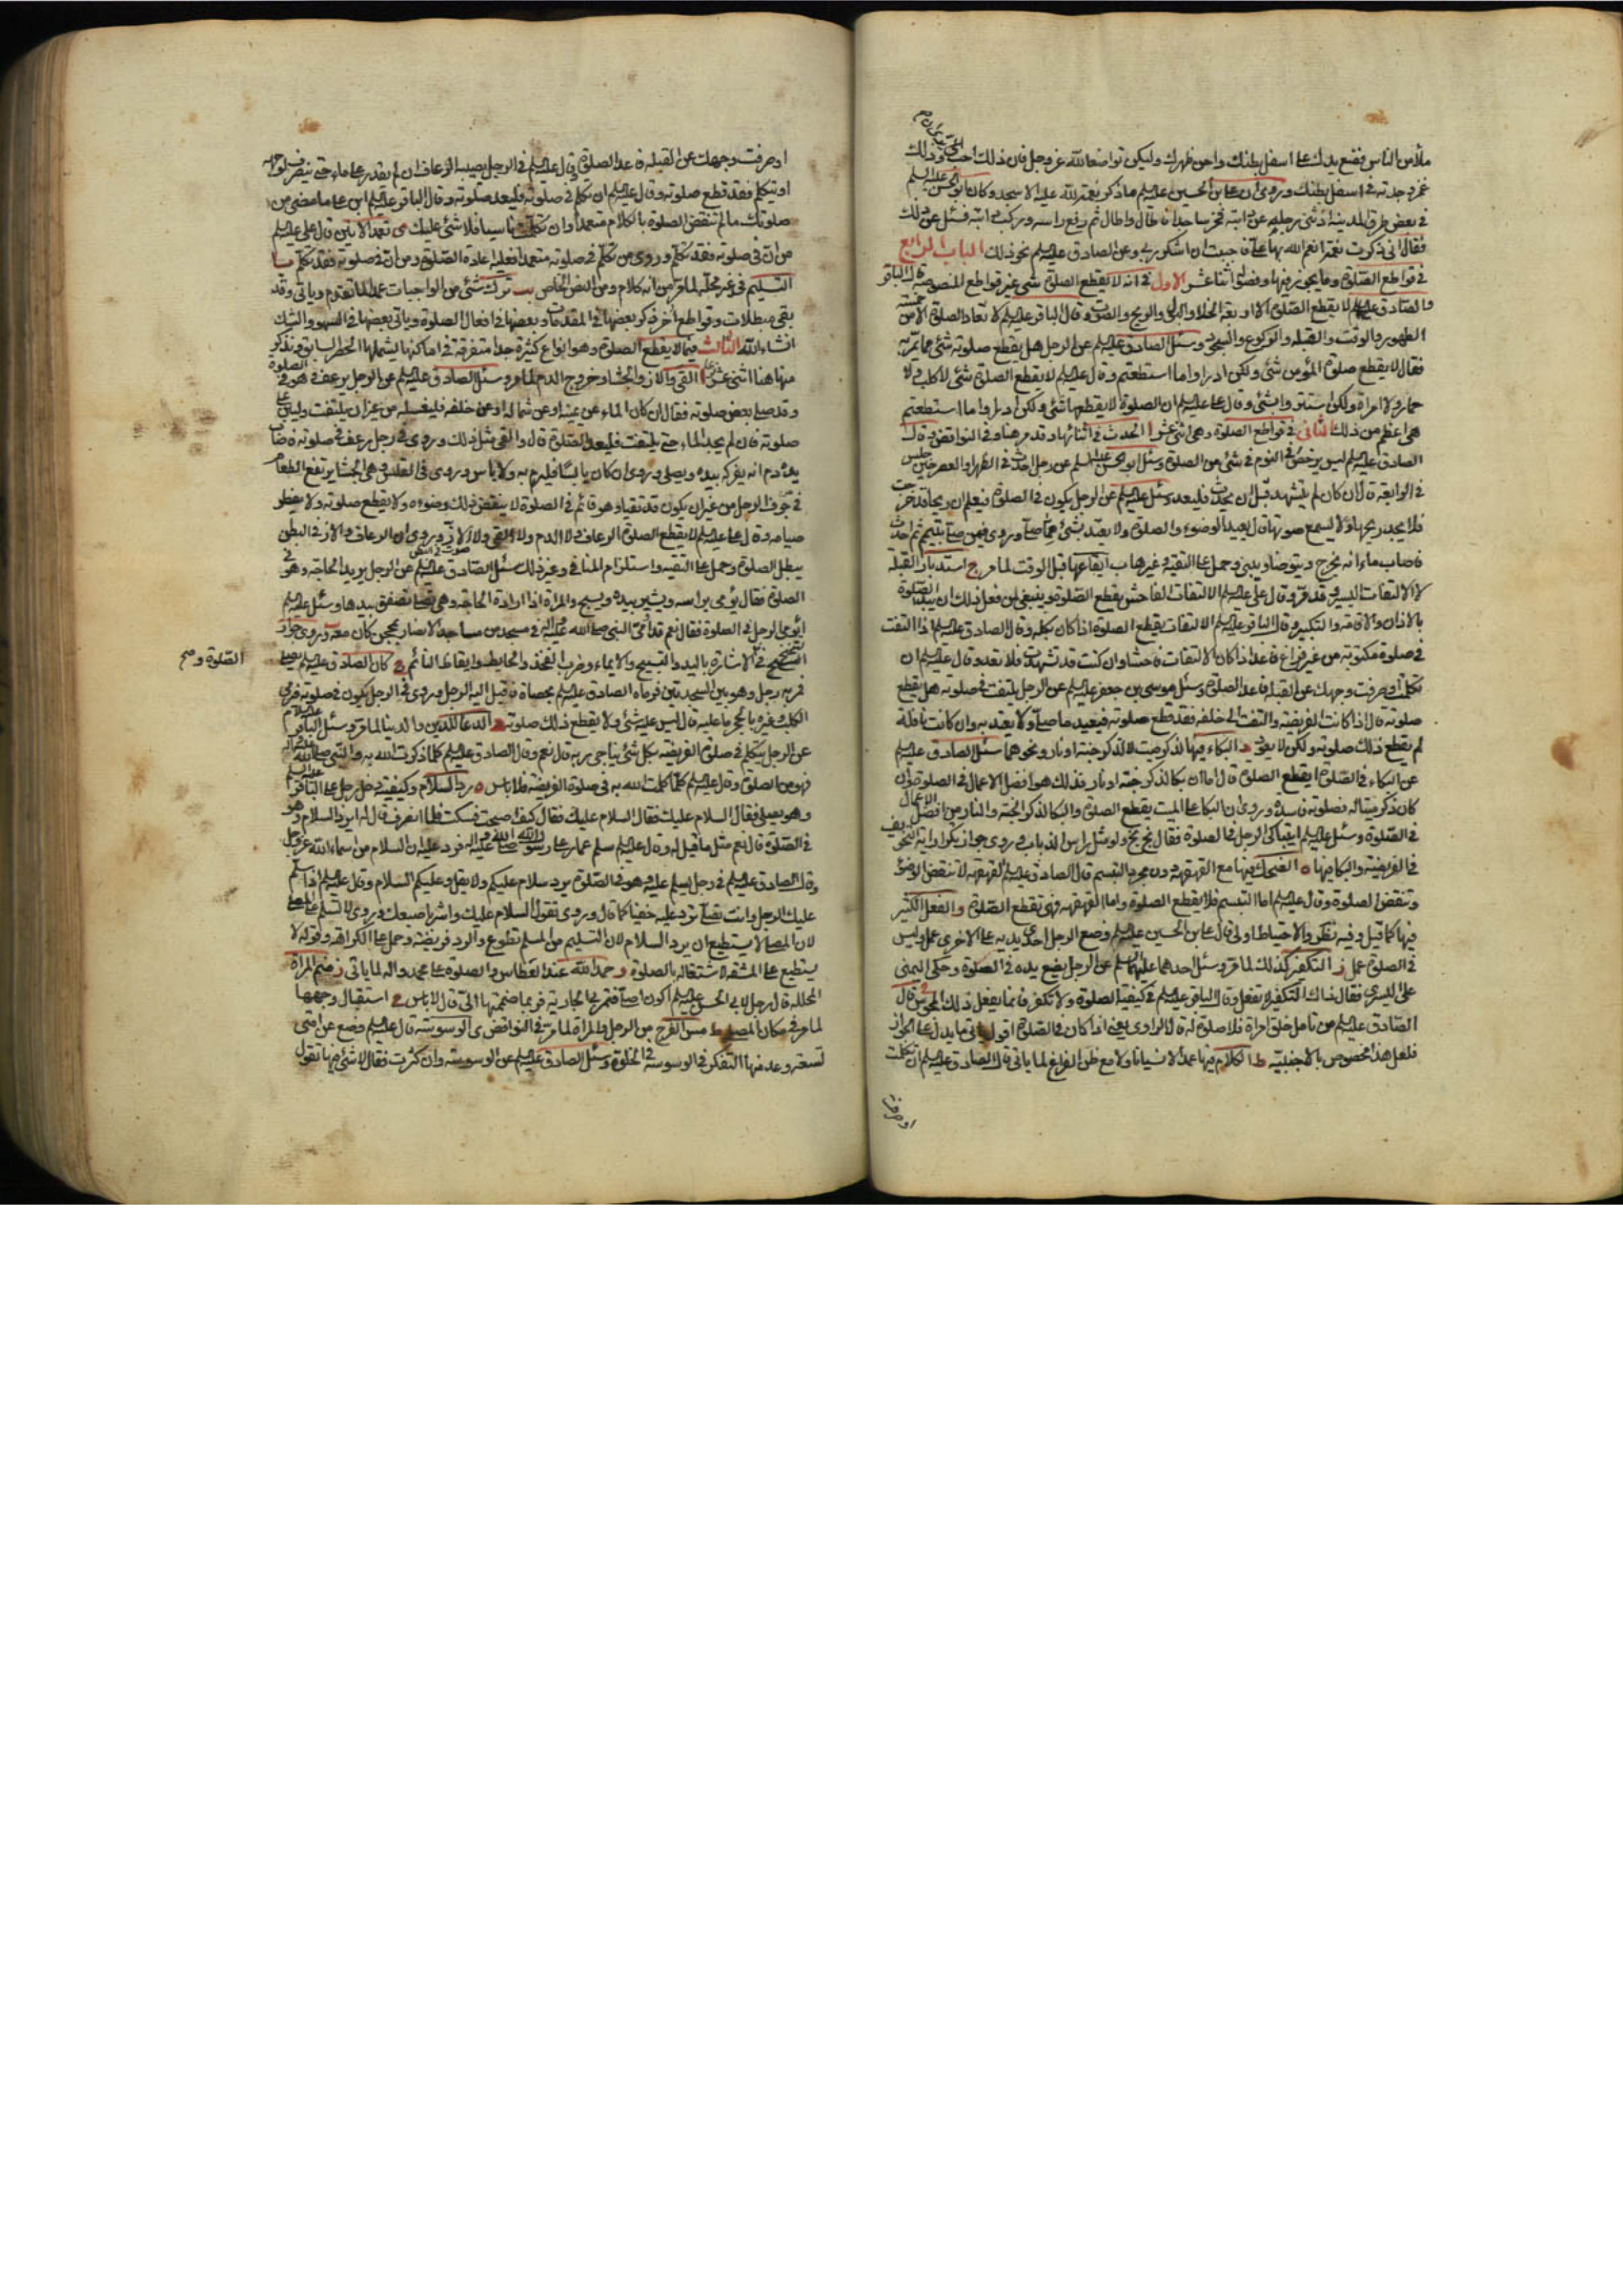 ملأ من الناس فضع يدك على اسفل بطنك واحن ظهرك وليكن تواضعا لله عز وجل فان ذلك احب وذلك
غمز وجدته في اسفل بطنك وروى ان علي بن الحسين عليه السلم ما ذكر نعمة لله عليه الا سجد وكان ابو الحسن عليه السلم
في بعض طرق المدينة اذ ثنى رجليه عن دابته فخر ساجدا فاطال واطال ثم رفع راسه وركب دابته فسئل عن ذلك
فقال انى ذكرت نعمة انعم الله بها على فاحببت ان اشكر ربى وعن الصادق عليه السلم نحو ذلك الباب الرابع
في قواطع الصلوة وما يجوز فيها وفصوله اثنا عشر الاول في انه لا يقطع الصلوة شئ غير قواطع المنصوصة قال الباقر
والصادق عليهما السلم لا يقطع الصلوة الا اربعة الخلا والبول والريح والصوت وقال الباقر عليه السلم لا تعاد الصلوة الا من خمسة
الطهور والوقت والقبلة والركوع والسجود وسئل الصادق عليه السلم عن الرجل هل يقطع صلوته شئ مما يمر به
فقال لا يقطع صلوة المؤمن شئ ولكن ادراوا ما استطعتم وقال عليه السلم لا يقطع الصلوة شئ لا كلب ولا
حمار ولا امراة ولكن استتروا بشئ وقال على عليه السلم ان الصلوة لا يقطعها شئ ولكن ادراوا ما استطعتم
هى اعظم من ذلك الثانى في قواطع الصلوة وهى اثنى عشر ا الحدث في اثنائها وقد مر هنا وفي النواقض وقال
الصادق عليه السلم ليس يرخص في النوم في شئ من الصلوة وسئل ابو الحسن عليه السلم عن رجل احدث في الظهر او العصر حين جلس
في الرابعة قال ان كان لم يتشهد قبل ان يحدث فليعد وسئل عليه السلم عن الرجل يكون في الصلوة فيعلم ان ريحا قد خرجت
فلا يجد ريحها ولا يسمع صوتها قال يعيد الوضوء والصلوة ولا يعتد بشئ مما صلى وروى فيمن صلى بتيمم ثم احدث
فاصاب ماء انه يخرج ويتوضأ ويبنى وحمل على التقية وغيرها ب ايقاعها قبل الوقت لما مر ج استدبار القبلة
لا الالتفات اليسير وقد مر وقال على عليه السلم الالتفات الفاحش يقطع الصلوة وينبغى لمن فعل ذلك ان يبتدا الصلوة
بالاذان والاقامة والتكبير وقال الباقر عليه السلم الالتفات يقطع الصلوة اذا كان بكله وقال الصادق عليه السلم اذا التفت
في صلوة مكتوبة من غير فراغ فاعد اذا كان الالتفات فاحشا وان كنت قد تشهدت فلا تعد وقال عليه السلم ان
تكلمت او صرفت وجهك عن القبلة فاعد الصلوة وسئل موسى بن جعفر عليه السلم عن الرجل يلتفت في صلوته هل يقطع
صلوته قال اذا كانت الفريضة والتفت الى خلفه فقد قطع صلوته فيعيد ما صلى ولا يعتد به وان كانت نافلة
لم يقطع ذلك صلوته ولكن لا يعود د البكاء فيها لذكر ميت لا لذكر جنة او نار ونحوهما سئل الصادق عليه السلم
عن البكاء في الصلوة ايقطع الصلوة قال اما ان بكا لذكر جنة او نار فذلك هو افضل الاعمال في الصلوة وان
كان ذكر ميتا له فصلوته فاسدة وروى ان البكا على الميت يقطع الصلوة والبكا لذكر الجنة والنار من افضل الاعمال
في الصلوة وسئل عليه السلم ايتباكى الرجل في الصلوة فقال بخ بخ ولو مثل راس الذباب وروى جواز
في الفريضة والبكا فيها ه الضحك فيها مع القهقهة دون مجرد التبسم قال الصادق عليه السلم القهقهة لا تنقض الوضوء
وتنقض الصلوة وقال عليه السلم اما التبسم فلا يقطع الصلوة واما القهقهة فهى تقطع الصلوة و الفعل الكثير
فيها كما قيل وفيه نظر والاحتياط اولى قال على بن الحسين عليه السلم وضع الرجل احدى يديه على الاخرى عمل وليس
في الصلوة عمل ز التكفير كذلك لما مر وسئل احدهما عليهما السلم عن الرجل يضع يده في الصلوة وحكى اليمنى
على اليسرى فقال ذلك التكفير لا تفعل وقال الباقر عليه السلم في كيفية الصلوة ولا تكفر فانما يفعل ذلك المجوس قال
الصادق عليه السلم من تامل خلق امراة فلا صلوة له قال الراوى يعنى اذا كان في الصلوة اقول ياتى ما يدل على الجواز
فلعل هذا مخصوص بالاجنبية ط الكلام فيها عمدا لا نسيانا ولا مع ظن الفراغ لما ياتى قال الصادق عليه السلم ان تكلمت
او صرفت
او صرفت وجهك عن القبلة فاعد الصلوة وقال عليه السلم في الرجل يصيبه الرعاف ان لم يقدر على ماء حتى ينصرف لوجهه
او يتكلم فقد قطع صلوته وقال عليه السلم ان تكلم في صلوته فليعد صلوته وقال الباقر عليه السلم ابن على ما مضى من
صلوتك ما لم تنقض الصلوة بالكلام متعمدا وان تكلمت ناسيا فلا شئ عليك ى تعمد الانين قال على عليه السلم
من ان في صلوته فقد تكلم وروى من تكلم في صلوته متعمدا فعليه اعادة الصلوة ومن ان في صلوته فقد تكلم يا
التسليم في غير محله لما مر من انه كلام ومن النص الخاص يب ترك شئ من الواجبات عمدا لما تقدم وياتى وقد
بقى مبطلات وقواطع اخر ذكر بعضها في المقدمات وبعضها في افعال الصلوة وياتى بعضها في السهو والشك
انشاء الله الثالث فيما لا يقطع الصلوة وهو انواع كثيرة جدا متفرقة في اماكنها يشملها الحصر السابق ونذكر
منها هنا اثنى عشر ا القى والاز والجشا وخروج الدم لما مر وسئل الصادق عليه السلم عن الرجل يرعف وهو في الصلوة
وقد صلى بعض صلوته فقال ان كان الماء عن يمينه او عن شماله او عن خلفه فليغسله من غير ان يلتفت وليبن على
صلوته فان لم يجد الماء حتى يلتفت فليعد الصلوة قال والقى مثل ذلك وروى في رجل رعف في صلوته فاصاب
يده دم انه يفركه بيده ويصلى وروى ان كان يابسا فليرم به ولا باس وروى في القلس وهى الجشا يرتفع الطعام
في جوف الرجل من غير ان يكون قد تقيا وهو قائم في الصلوة لا ينقض ذلك وضوءه ولا يقطع صلوته ولا يفطر
صيامه وقال على عليه السلم لا يقطع الصلوة الرعاف ولا الدم ولا القى ولا الاز وروى ان الرعاف والاز في البطن
يبطل الصلوة وحمل على التقية واستلزام المنافى وغير ذلك سئل الصادق عليه السلم عن الرجل يريد الحاجة وهو في
الصلوة فقال يؤمى براسه ويشير بيده ويسبح والمراة اذا ارادت الحاجة وهى تصلى تصفق بيدها وسئل عليه السلم
ايومى الرجل في الصلوة فقال نعم قد اومى النبى صلى الله عليه واله في مسجد من مساجد الانصار بمحجن كان معه وروى جواز
التنحنح في الاشارة باليد والتسبيح والايماء وضرب الفخذ والحايط وايقاظ النائم ج كان الصادق عليه السلم يصلى
فمر به رجل وهو بين السجدتين فرماه الصادق عليه السلم بحصاة فاقبل اليه الرجل وروى في الرجل يكون في صلوته فرمى
الصلوة و صح
الكلب وغيره بالحجر ما عليه قال ليس عليه شئ ولا يقطع ذلك صلوته د الدعا للدين والدنيا لما مر وسئل الباقر عليه السلام
عن الرجل يتكلم في صلوة الفريضة بكل شئ يناجى ربه قال نعم وقال الصادق عليه السلم كلما ذكرت الله به والنبى صلى الله عليه واله
فهو من الصلوة وقال عليه السلم كلما كلمت الله به في صلوة الفريضة فلا باس ه رد السلام وكيفيته دخل رجل على الباقر عليه السلم
وهو يصلى فقال السلام عليك فقال السلام عليك فقال كيف اصبحت فسكت فلما انصرف قال له ايرد السلام وهو
في الصلوة قال نعم مثل ما قيل له وقال عليه السلم سلم عمار على رسول الله صلى الله عليه واله فرد عليه ان السلام من اسماء الله عز وجل
وقال الصادق عليه السلم في رجل يسلم عليه وهو في الصلوة يرد سلام عليكم ولا يقل وعليكم السلام وقال عليه السلم اذا سلم
عليك الرجل وانت تصلى ترد عليه خفيا كما قال وروى تقول السلام عليك واشر باصبعك وروى لا تسلم على المصلى
لان المصلى لا يستطيع ان يرد السلام لان التسليم من المسلم تطوع والرد فريضة وحمل على الكراهة وقوله لا
يستطيع على المشقة لاشتغاله بالصلوة و حمد الله عند العطاس والصلوة على محمد واله لما ياتى ز ضم المراة
المحللة قال رجل لابى الحسن عليه السلم اكون اصلى فتمر بى الجارية فربما ضممتها الى قال لا باس ح استقبال وجهها
لما مر في مكان المصلى ط مس الفرج من الرجل والمراة لما مر في النواقض ى الوسوسة قال عليه السلم وضع عن امتى
تسعة وعد منها التفكر في الوسوسة في الخلق وسئل الصادق عليه السلم عن الوسوسة وان كثرت فقال لا شئ فيها تقول